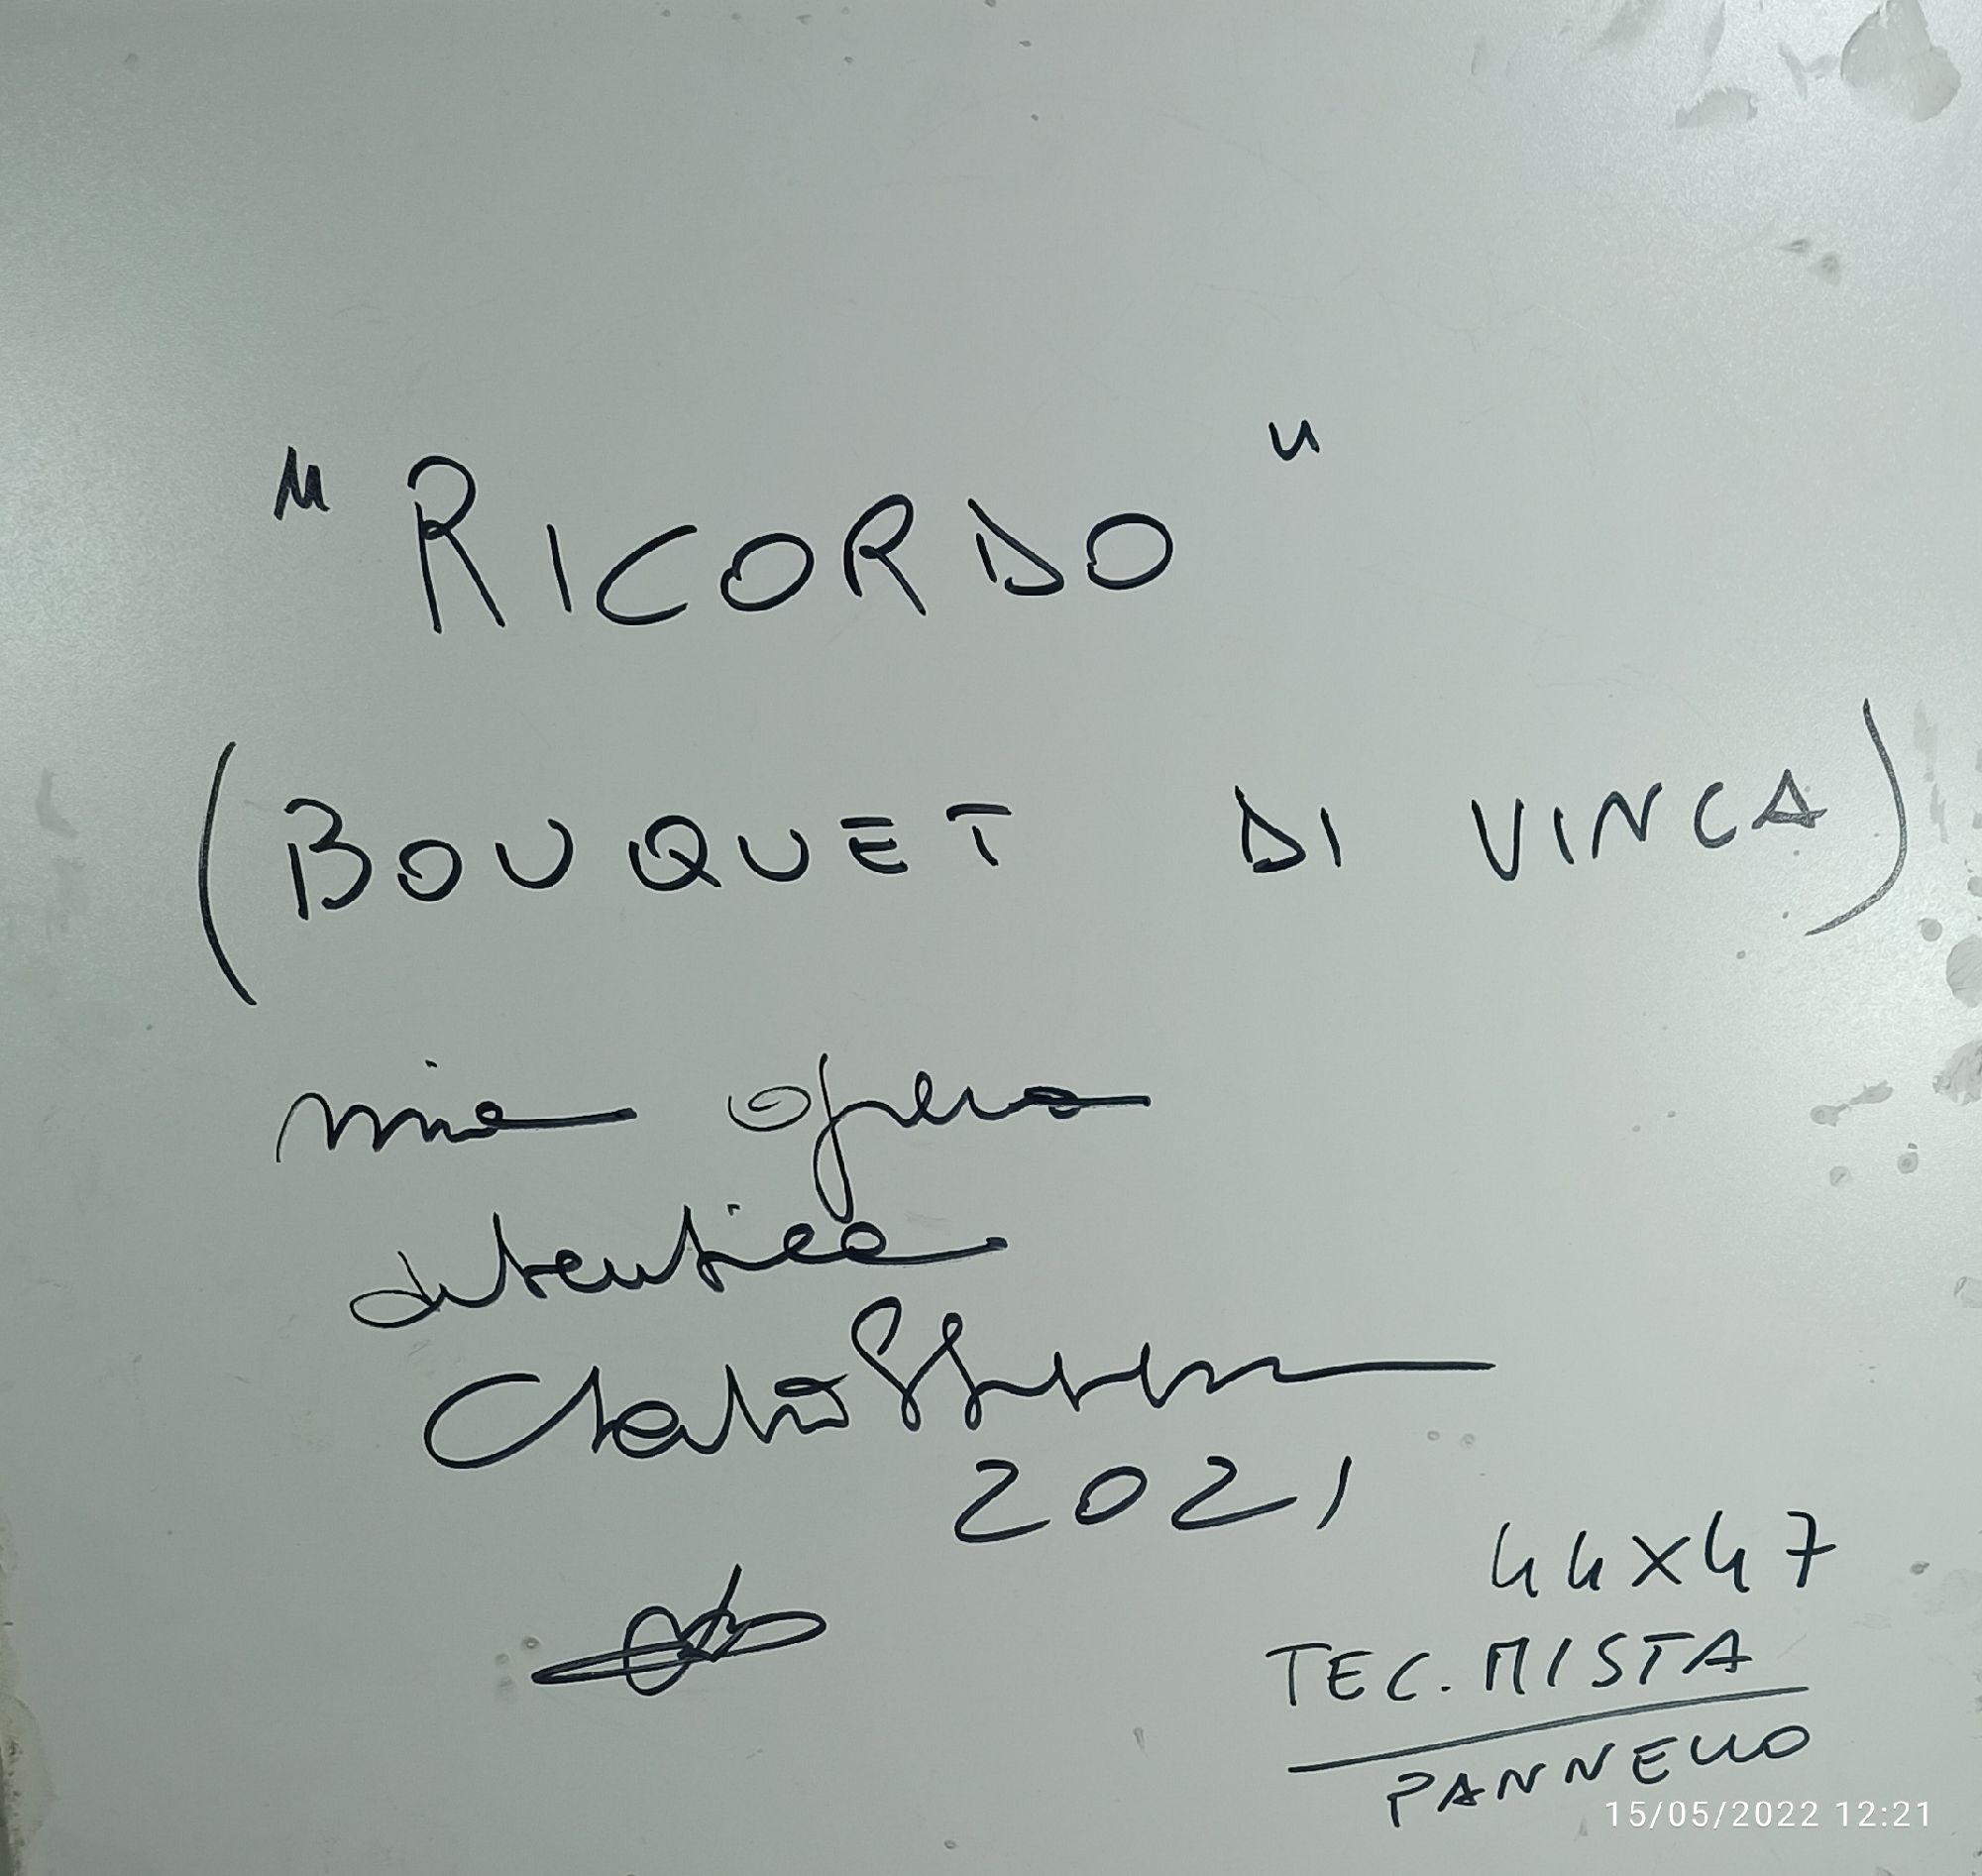 "RICORDO"
(BOUQUET DI VINCA)
mia opera
autentica
2021
44x47
TEC. MISTA
PANNELLO
15/05/2022 12:21